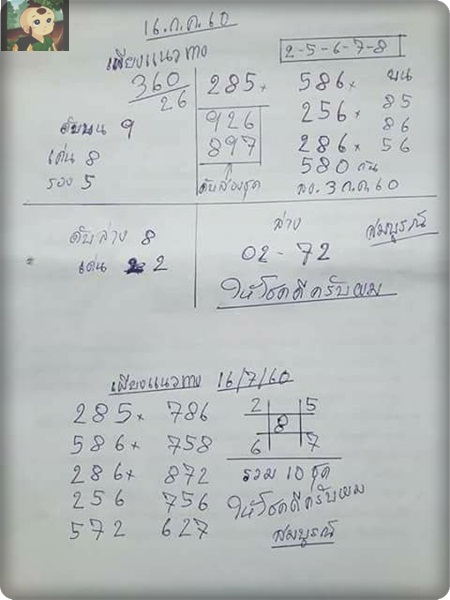 16.ก.ค.60
เพียงแนวทาง
2-5-6-7-8
360
26
285x
586x
บน
926
256x
85
ดับบน 9
897
286x
86
เด่น 8
580
56
รอง 5
ดับสองชุด
ลง.3ก.ค.60
ดับล่าง 8
ล่าง
สมบูรณ์
เด่น 2
02-72
ให้โชคดีครับผม
เพียงแนวทาง 16/7/60
285x 786
2 5
586x 758
8
286x 872
6 7
256 756
รวม 10 ชุด
572 627
ให้โชคดีครับผม
สมบูรณ์